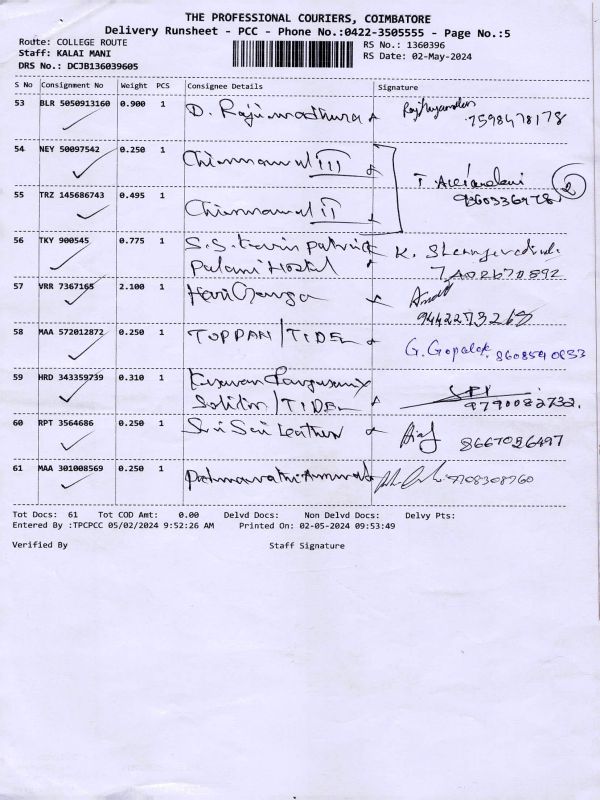 THE PROFESSIONAL COURIERS, COIMBATORE
Delivery Runsheet - PCC - Phone No.:0422-3505555 - Page No.:5
Route: COLLEGE ROUTE
RS No.: 1360396
Staff: KALAI MANI
RS Date: 02-May-2024
DRS No.: DCJB136039605
S No Consignment No Weight PCS Consignee Details Signature
53 BLR 5050913160 0.900 1 D.
7598478178
54 NEY 50097542 0.250 1 III
T 2
55 TRZ 145686743 0.495 1 II
56 TKY 900545 0.775 1 S.S. Patrick K.
Palani Hostel
57 VRR 7367165 2.100 1
9442273268
58 MAA 572012872 0.250 1 TOPPAN/TIDEL G. Gopalak
59 HRD 343359739 0.310 1
/TIDEL 9790082732.
60 RPT 3564686 0.250 1 Sri Sai Leather 8667026497
61 MAA 301008569 0.250 1
Tot Docs: 61 Tot COD Amt: 0.00 Delvd Docs: Non Delvd Docs: Delvy Pts:
Entered By :TPCPCC 05/02/2024 9:52:26 AM Printed On: 02-05-2024 09:53:49
Verified By Staff Signature